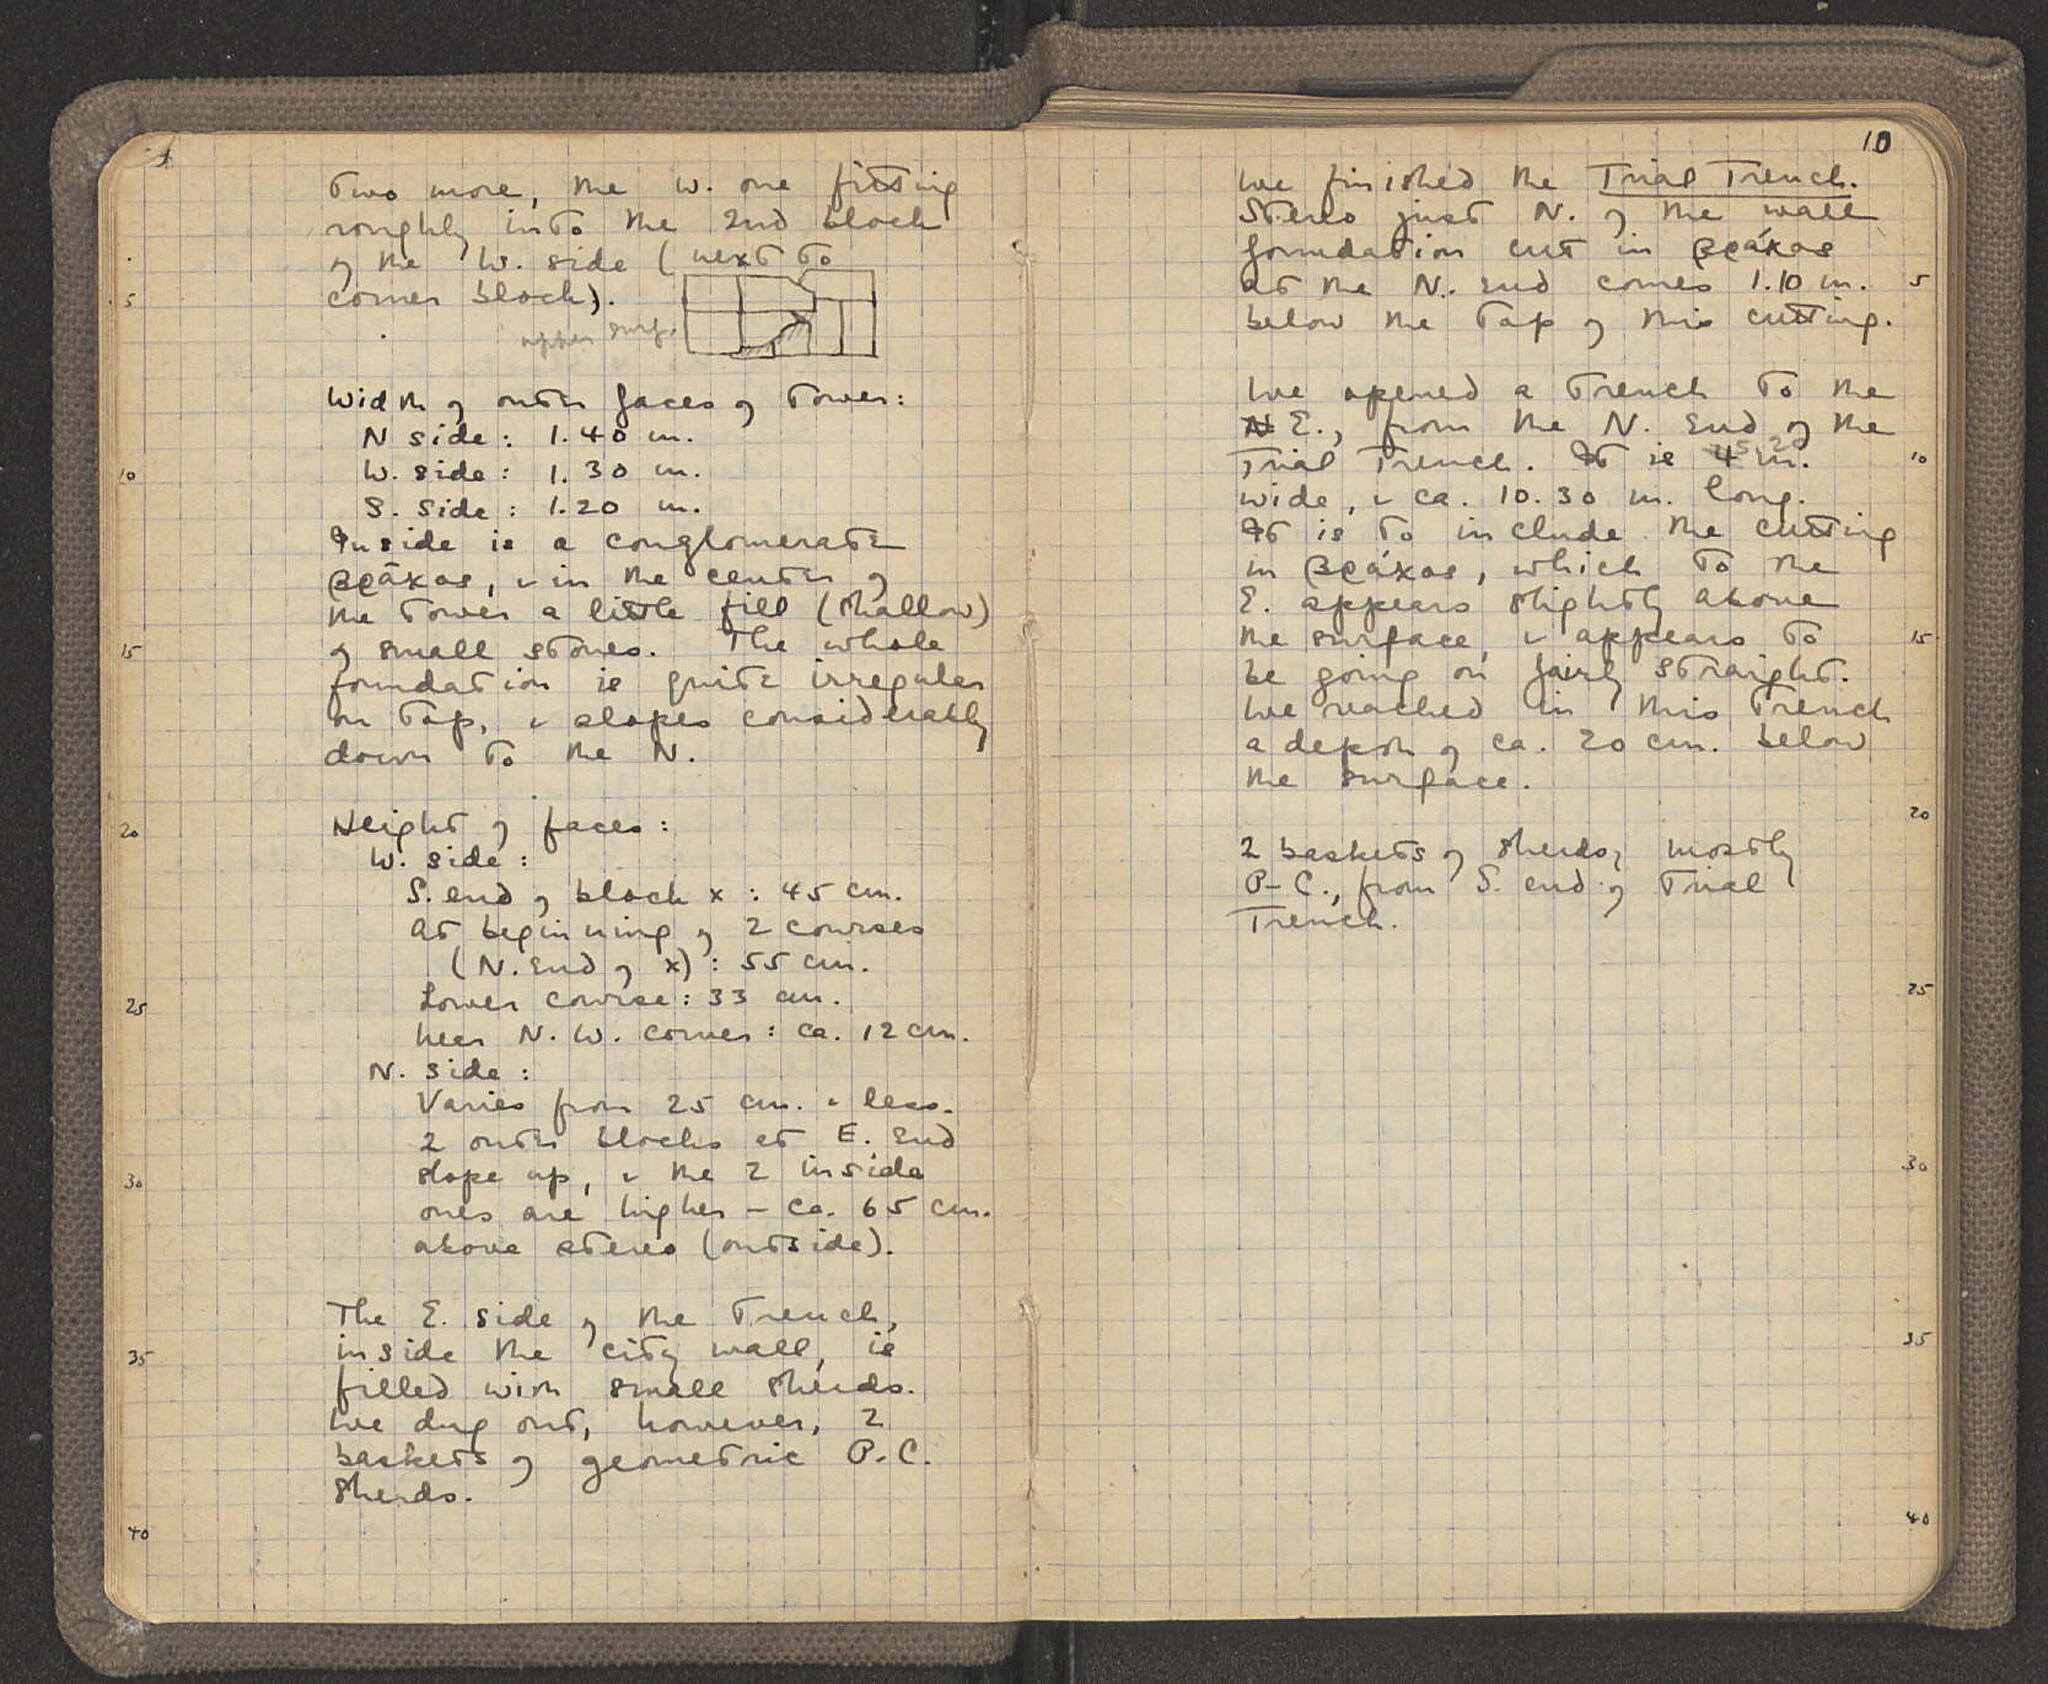 two more, the W. one fitting
roughly into the 2nd block
of the W. side (next to
5 corner block).
upper surf.
Width of outer faces of tower:
N side: 1.40 m.
10 W. side: 1.30 m.
S. side: 1.20 m.
Inside is a conglomerate
βράχος, & in the center of
the tower a little fill (shallow)
15 of small stones. The whole
foundation is quite irregular
on top, & slopes considerably
down to the N.
20 Height of faces:
W. side:
S. end of block x: 45 cm.
At beginning of 2 courses
(N. end of x): 55 cm.
25 Lower course: 33 cm.
near N.W. corner: ca. 12 cm.
N. side:
Varies from 25 cm. & less.
2 outer blocks at E. end
30 slope up, & the 2 inside
ones are higher – ca. 65 cm.
above stereo (outside).
The E. side of the trench,
35 inside the city wall, is
filled with small sherds.
We dug out, however, 2
baskets of geometric P.C.
sherds.
40
10
We finished the Trial Trench.
Stereo just N. of the wall
foundation cut in βράχος
at the N. end comes 1.10 m. 5
below the top of this cutting.
We opened a trench to the
N E., from the N. end of the
Trial Trench. It is 4 5.20 m. 10
wide, & ca. 10.30 m. long.
It is to include the cutting
in βράχος, which to the
E. appears slightly above
the surface, & appears to 15
be going on fairly straight.
We reached in this trench
a depth of ca. 20 cm. below
the surface.
20
2 baskets of sherds, mostly
P-C., from S. end of Trial
Trench.
25
30
35
40